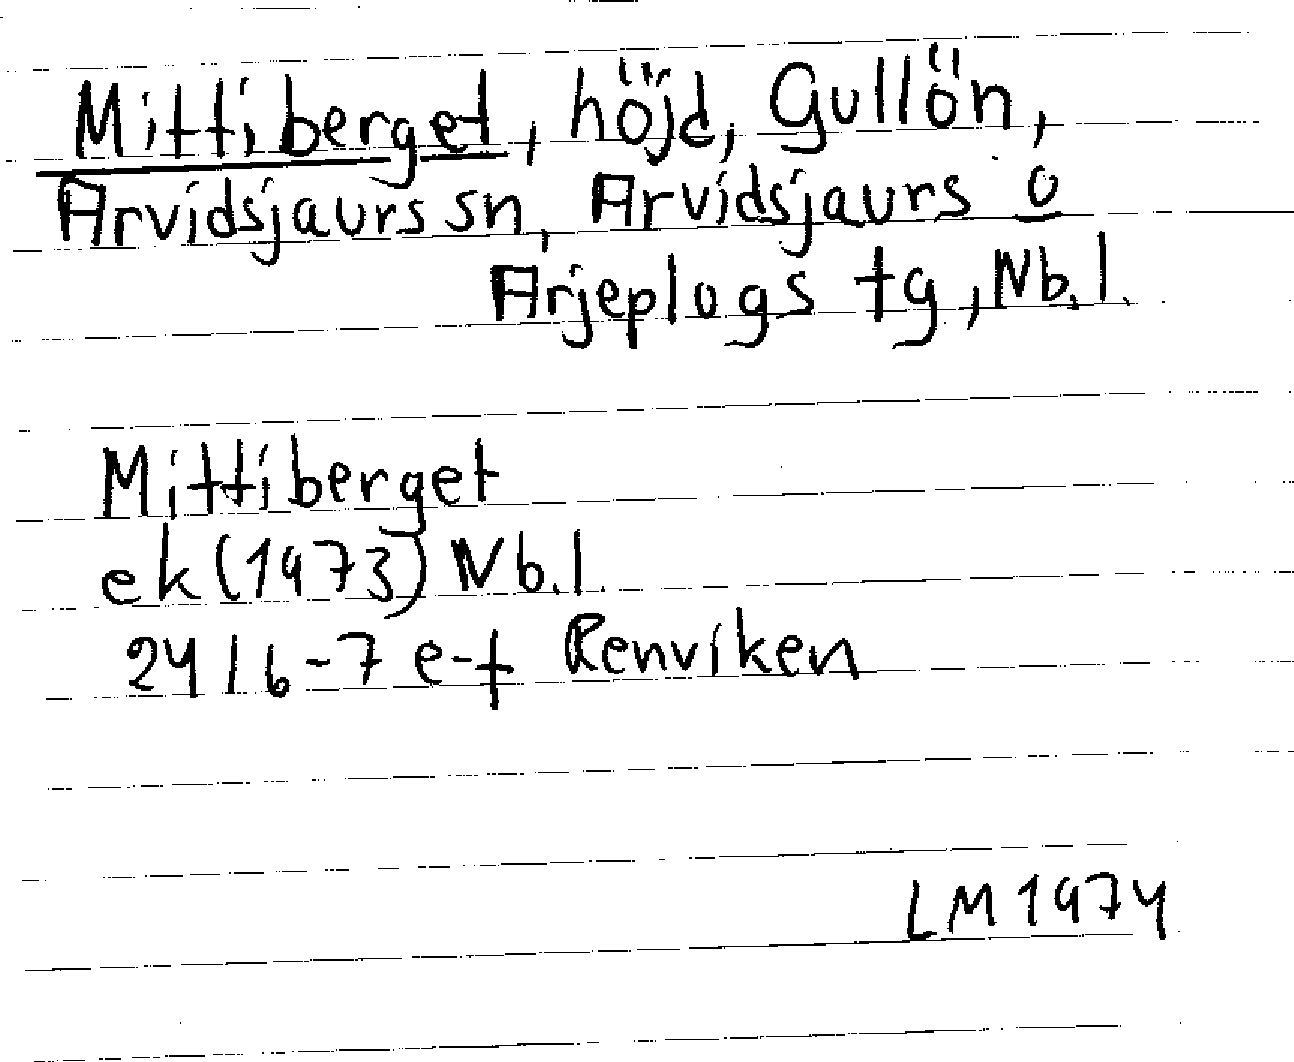 Mittiberget, höjd, Gullön,
Arvidsjaurs sn, Arvidsjaurs o
Arjeplogs tg, Nb.l.
Mittiberget
ek (1973) Nb.l.
24 I 6-7 e-f Renviken
LM 1974